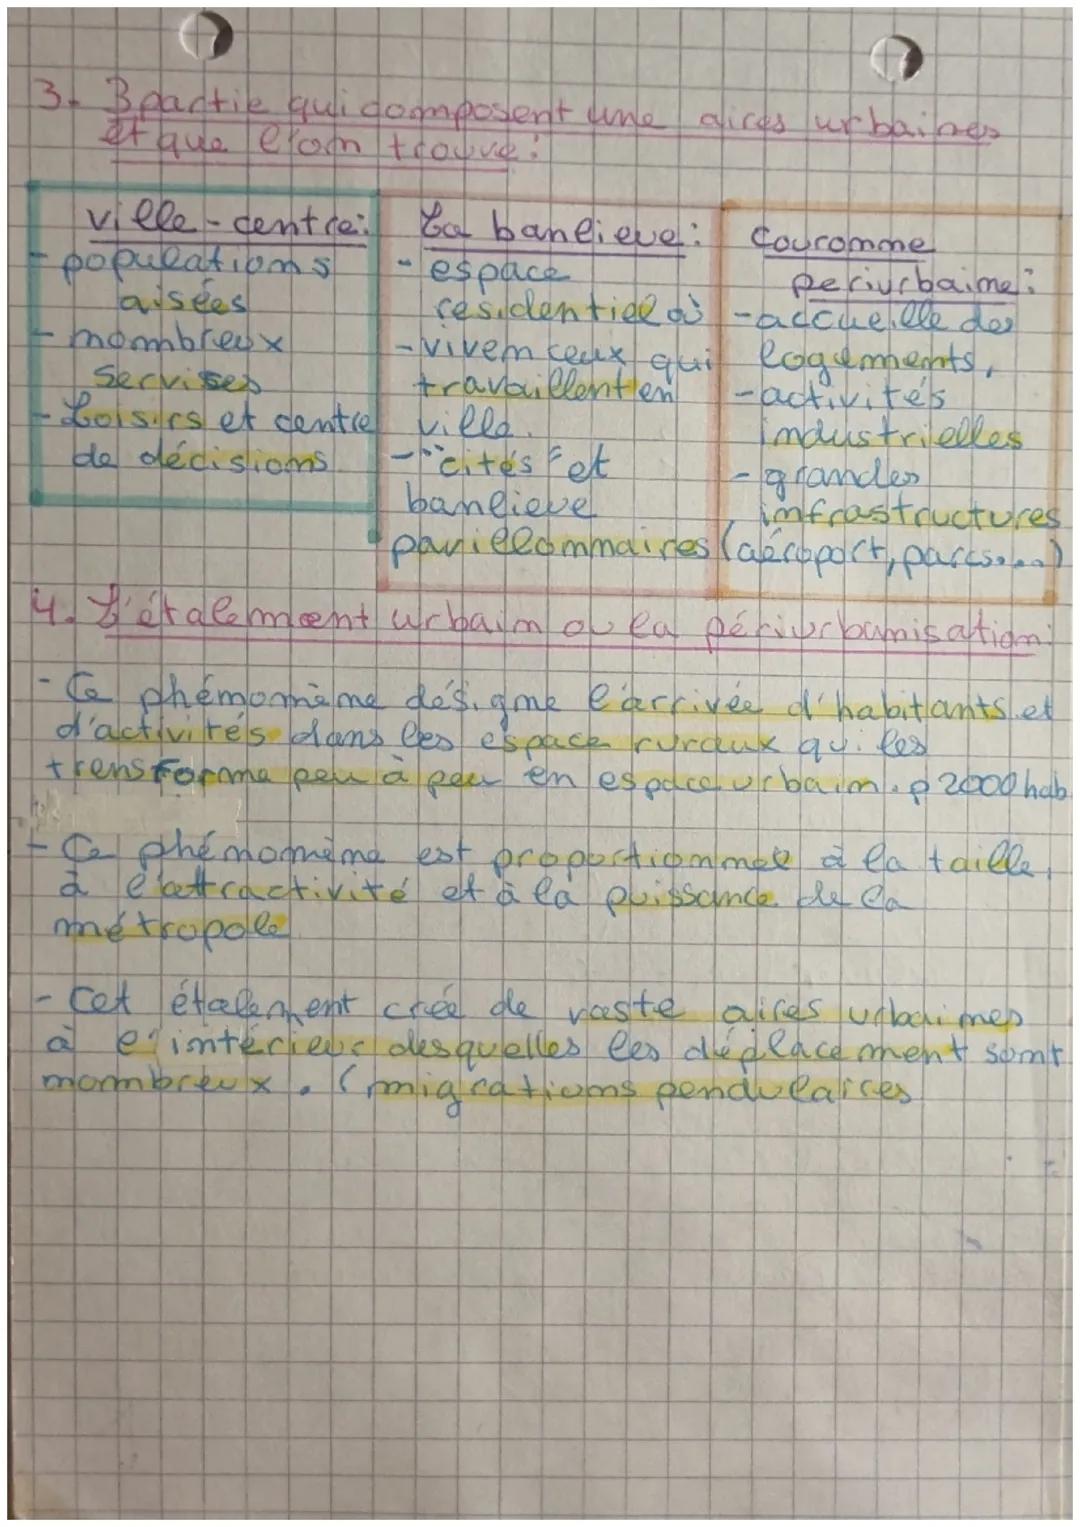 3. 3 partie qui composent une aires urbaines
et que l'on trouve :
ville-centre :
- populations
aisées
- nombreux
services
- Loisirs et centre
de décisions
La banlieue :
- espace
résidentiel où
- vivem ceux qui
travaillent en
ville.
- "cités" et
banlieue
pavillonnaires
Couronne
periurbaine :
- accueille des
logements,
- activités
industrielles
- grandes
infrastructures
(aéroport, parcs....)
4. L'étalement urbain ou la périurbanisation :
- Ce phénomène désigne l'arrivée d'habitants et
d'activités dans les espace ruraux qui les
transforme peu à peu en espace urbain. 2000 hab
- Ce phénomène est proportionnel à la taille,
à l'attractivité et à la puissance de la
métropole
- Cet étalement crée de vaste aires urbaines
à l'intérieur desquelles les déplacement sont
nombreux. (migrations pendulaires